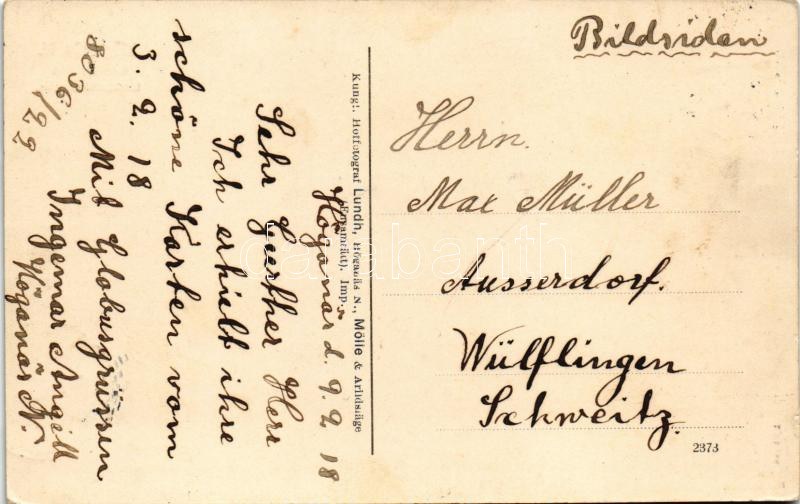 Bildsidan
Herrn.
Max Müller
Ausserdorf.
Wülflingen
Schweitz.
2373
Kungl. Hoffotograf Lundh, Höganäs N., Mölle & Arildsläge
Imp.
Höganäs d. 9. 2 18
Sehr Geehrter Herr
Ich erhielt ihre
schöne Karten vom
3. 2. 18
Mit Globusgrüssen
Ingemar Angell
Höganäs N.
8036
/22
darabanth